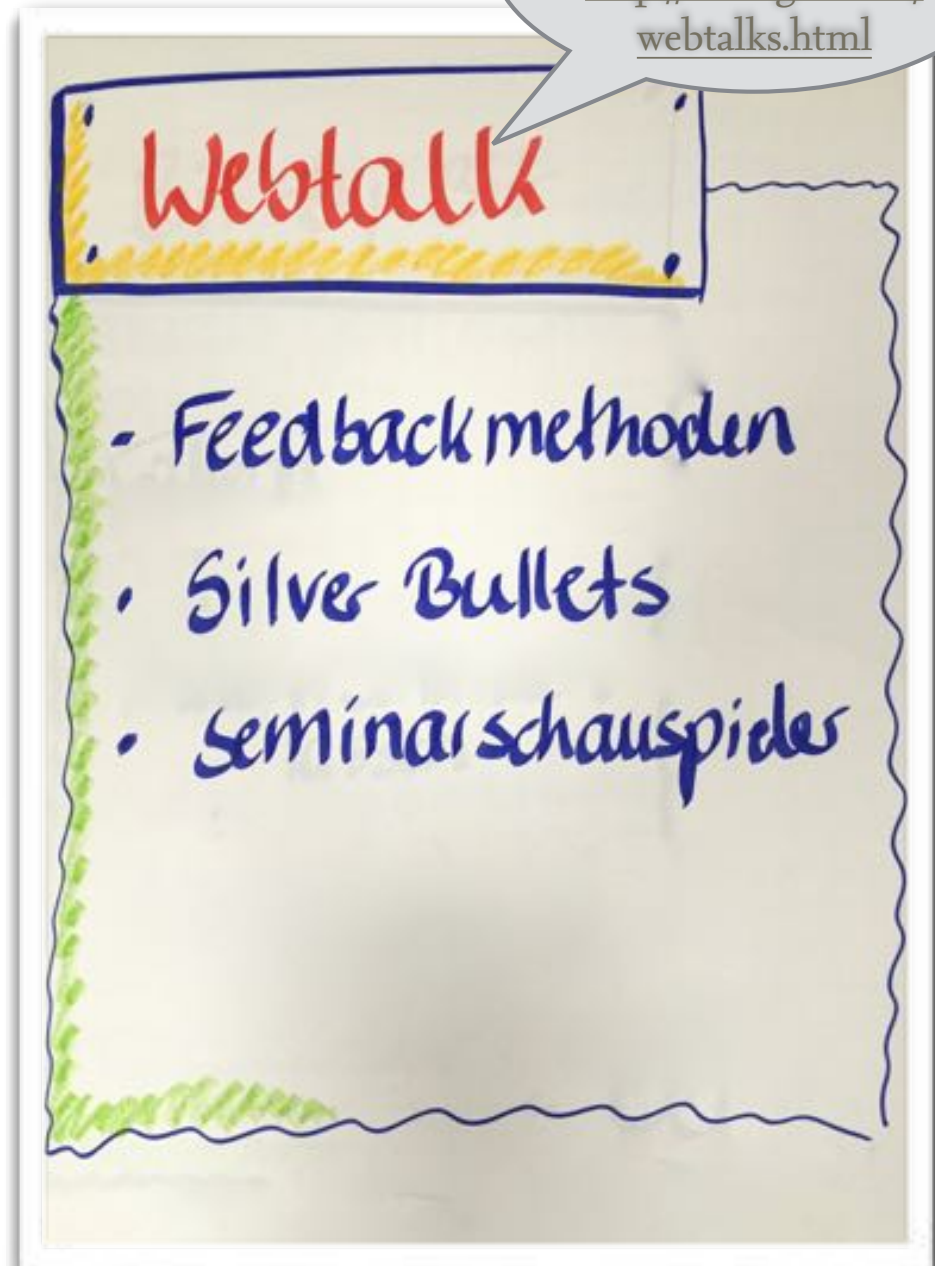 webtalks.html
Webtalk
- Feedbackmethoden
• Silver Bullets
• Seminarschauspieler